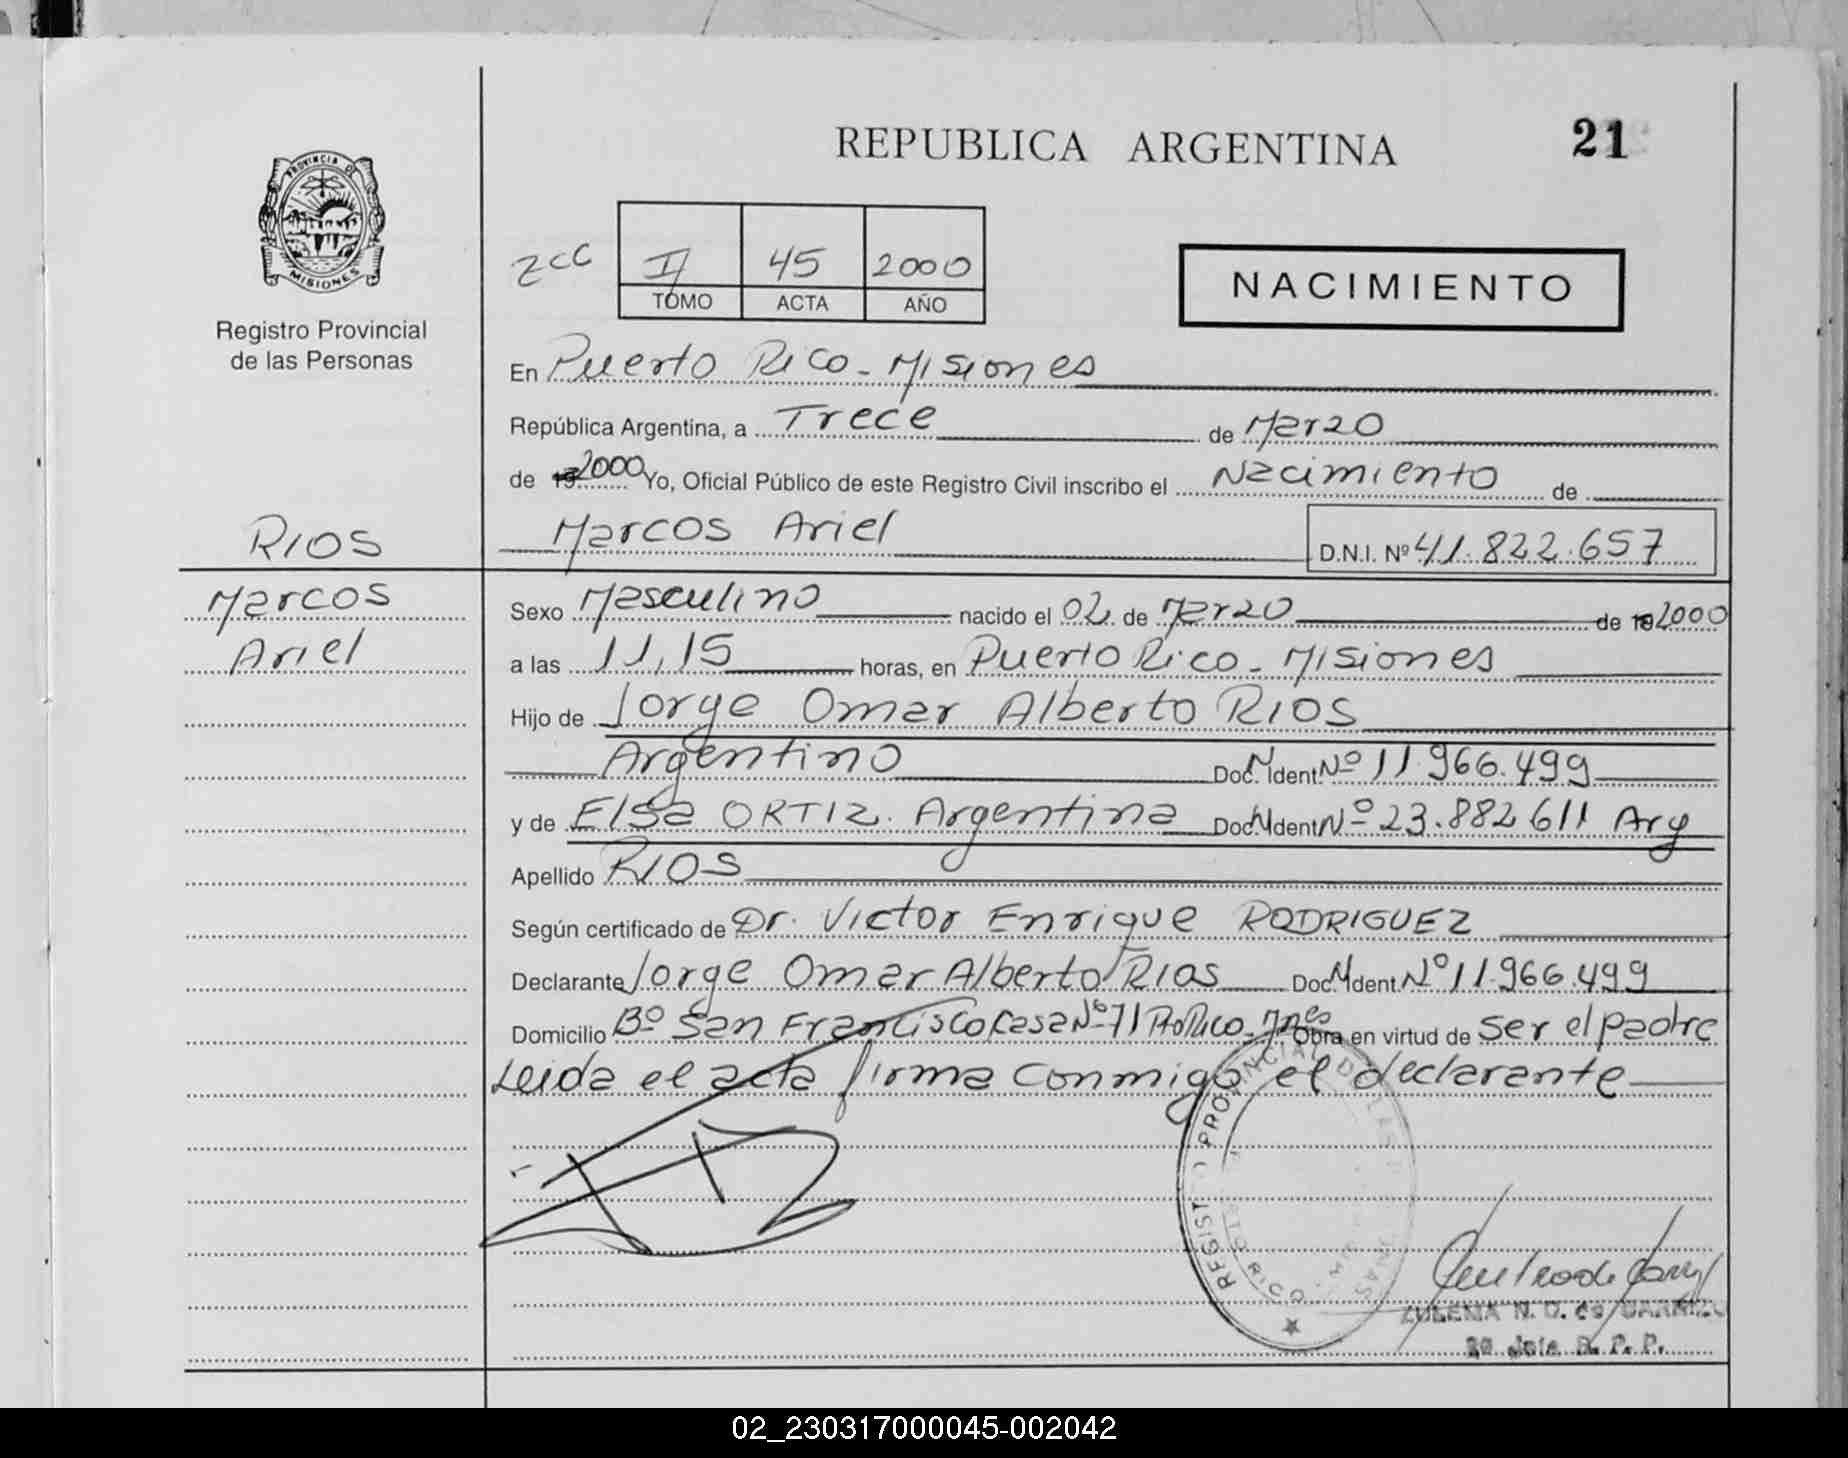 REPUBLICA ARGENTINA
21
PROVINCIA DE
MISIONES
Registro Provincial
de las Personas
2CC
I 45 2000
TOMO ACTA AÑO
NACIMIENTO
En Puerto Rico - Misiones
República Argentina, a Trece de Marzo
de 19 2000 Yo, Oficial Público de este Registro Civil inscribo el Nacimiento de
RIOS
Marcos Ariel
D.N.I. Nº 41.822.657
Marcos
Ariel
Sexo Masculino nacido el 02 de Marzo de 19 2000
a las 11,15 horas, en Puerto Rico - Misiones
Hijo de Jorge Omar Alberto RIOS
Argentino Doc. N. Ident. Nº 11.966.499
y de Elsa ORTIZ. Argentina Doc. N. Ident. Nº 23.882611 Arg
Apellido RIOS
Según certificado de Dr. Victor Enrique RODRIGUEZ
Declarante Jorge Omar Alberto RIOS Doc. N. Ident. Nº 11.966.499
Domicilio Bº San Francisco Casa Nº 71 Pto Rico - Mnes Obra en virtud de ser el padre
Leida el acta firma conmigo el declarante
REGISTRO PROVINCIAL DE LAS
PTO RICO
ZULEMA N. D. de
R. P. P.
02_230317000045-002042